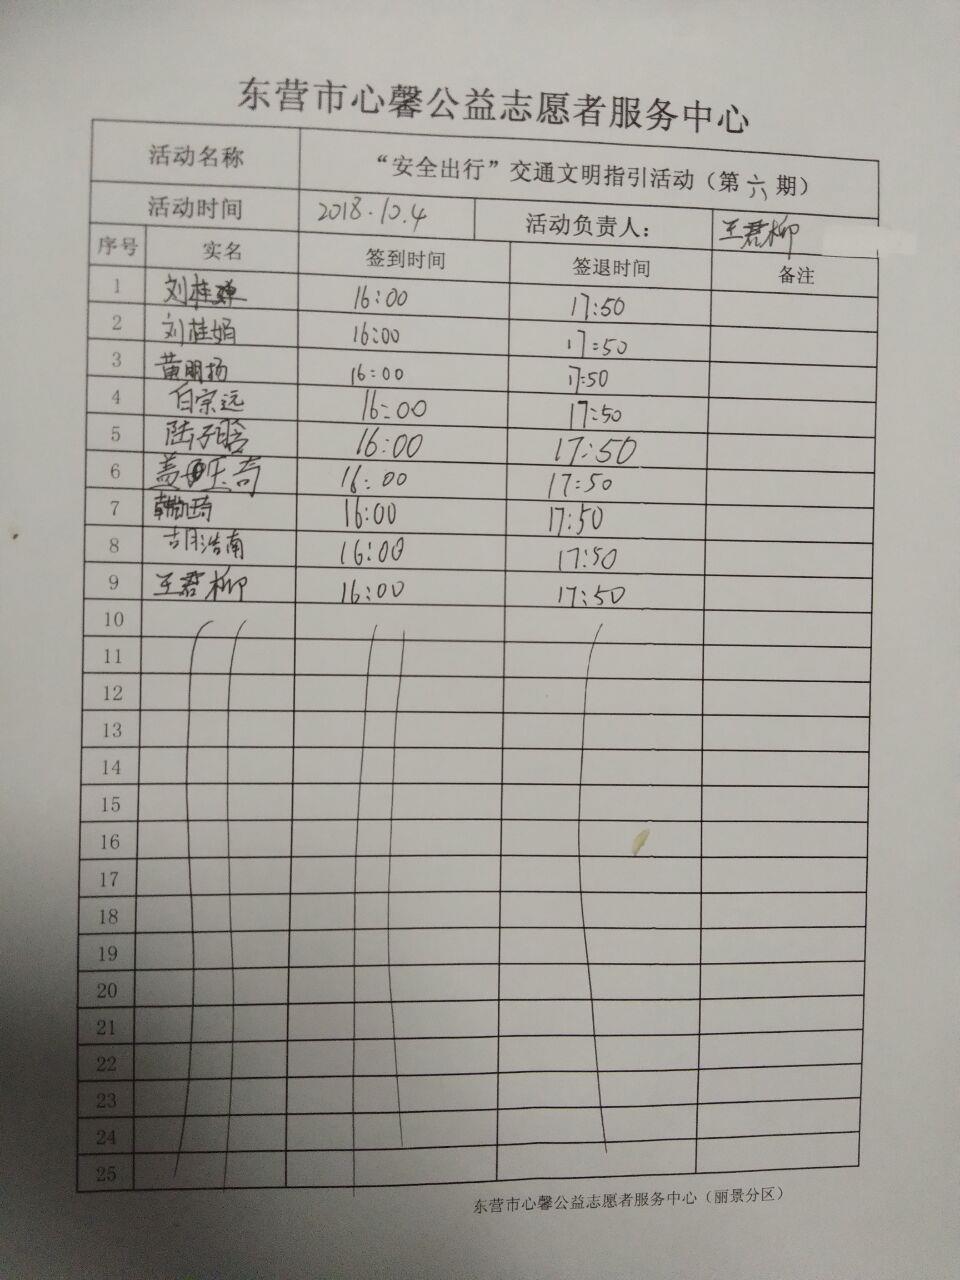 东营市心馨公益志愿者服务中心
活动名称 “安全出行”交通文明指引活动（第六期）
活动时间 2018.10.4 活动负责人： 王君柳
序号 实名 签到时间 签退时间 备注
1 刘桂 16:00 17:50
2 刘桂娟 16:00 17:50
3 黄明扬 16:00 17:50
4 白宗远 16:00 17:50
5 陆子晗 16:00 17:50
6 盖 奇 16:00 17:50
7 韩 琦 16:00 17:50
8 胡浩南 16:00 17:50
9 王君柳 16:00 17:50
10
11
12
13
14
15
16
17
18
19
20
21
22
23
24
25
东营市心馨公益志愿者服务中心（丽景分区）